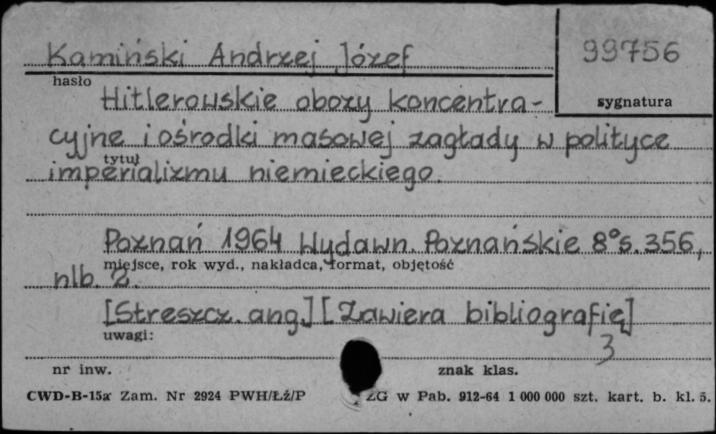 Kamiński Andrzej Józef
99756
hasło
sygnatura
Hitlerowskie obozy koncentra-
cyjne i ośrodki masowej zagłady w polityce
tytuł
imperializmu niemieckiego.
Poznań 1964 Wydawn. Poznańskie 8° s. 356,
miejsce, rok wyd., nakładca, format, objętość
nlb. 2.
[Streszcz. ang.] [Zawiera bibliografię]
uwagi:
3
nr inw.
znak klas.
CWD-B-15a Zam. Nr 2924 PWH/Łź/P
ZG w Pab. 912-64 1 000 000 szt. kart. b. kl. 5.